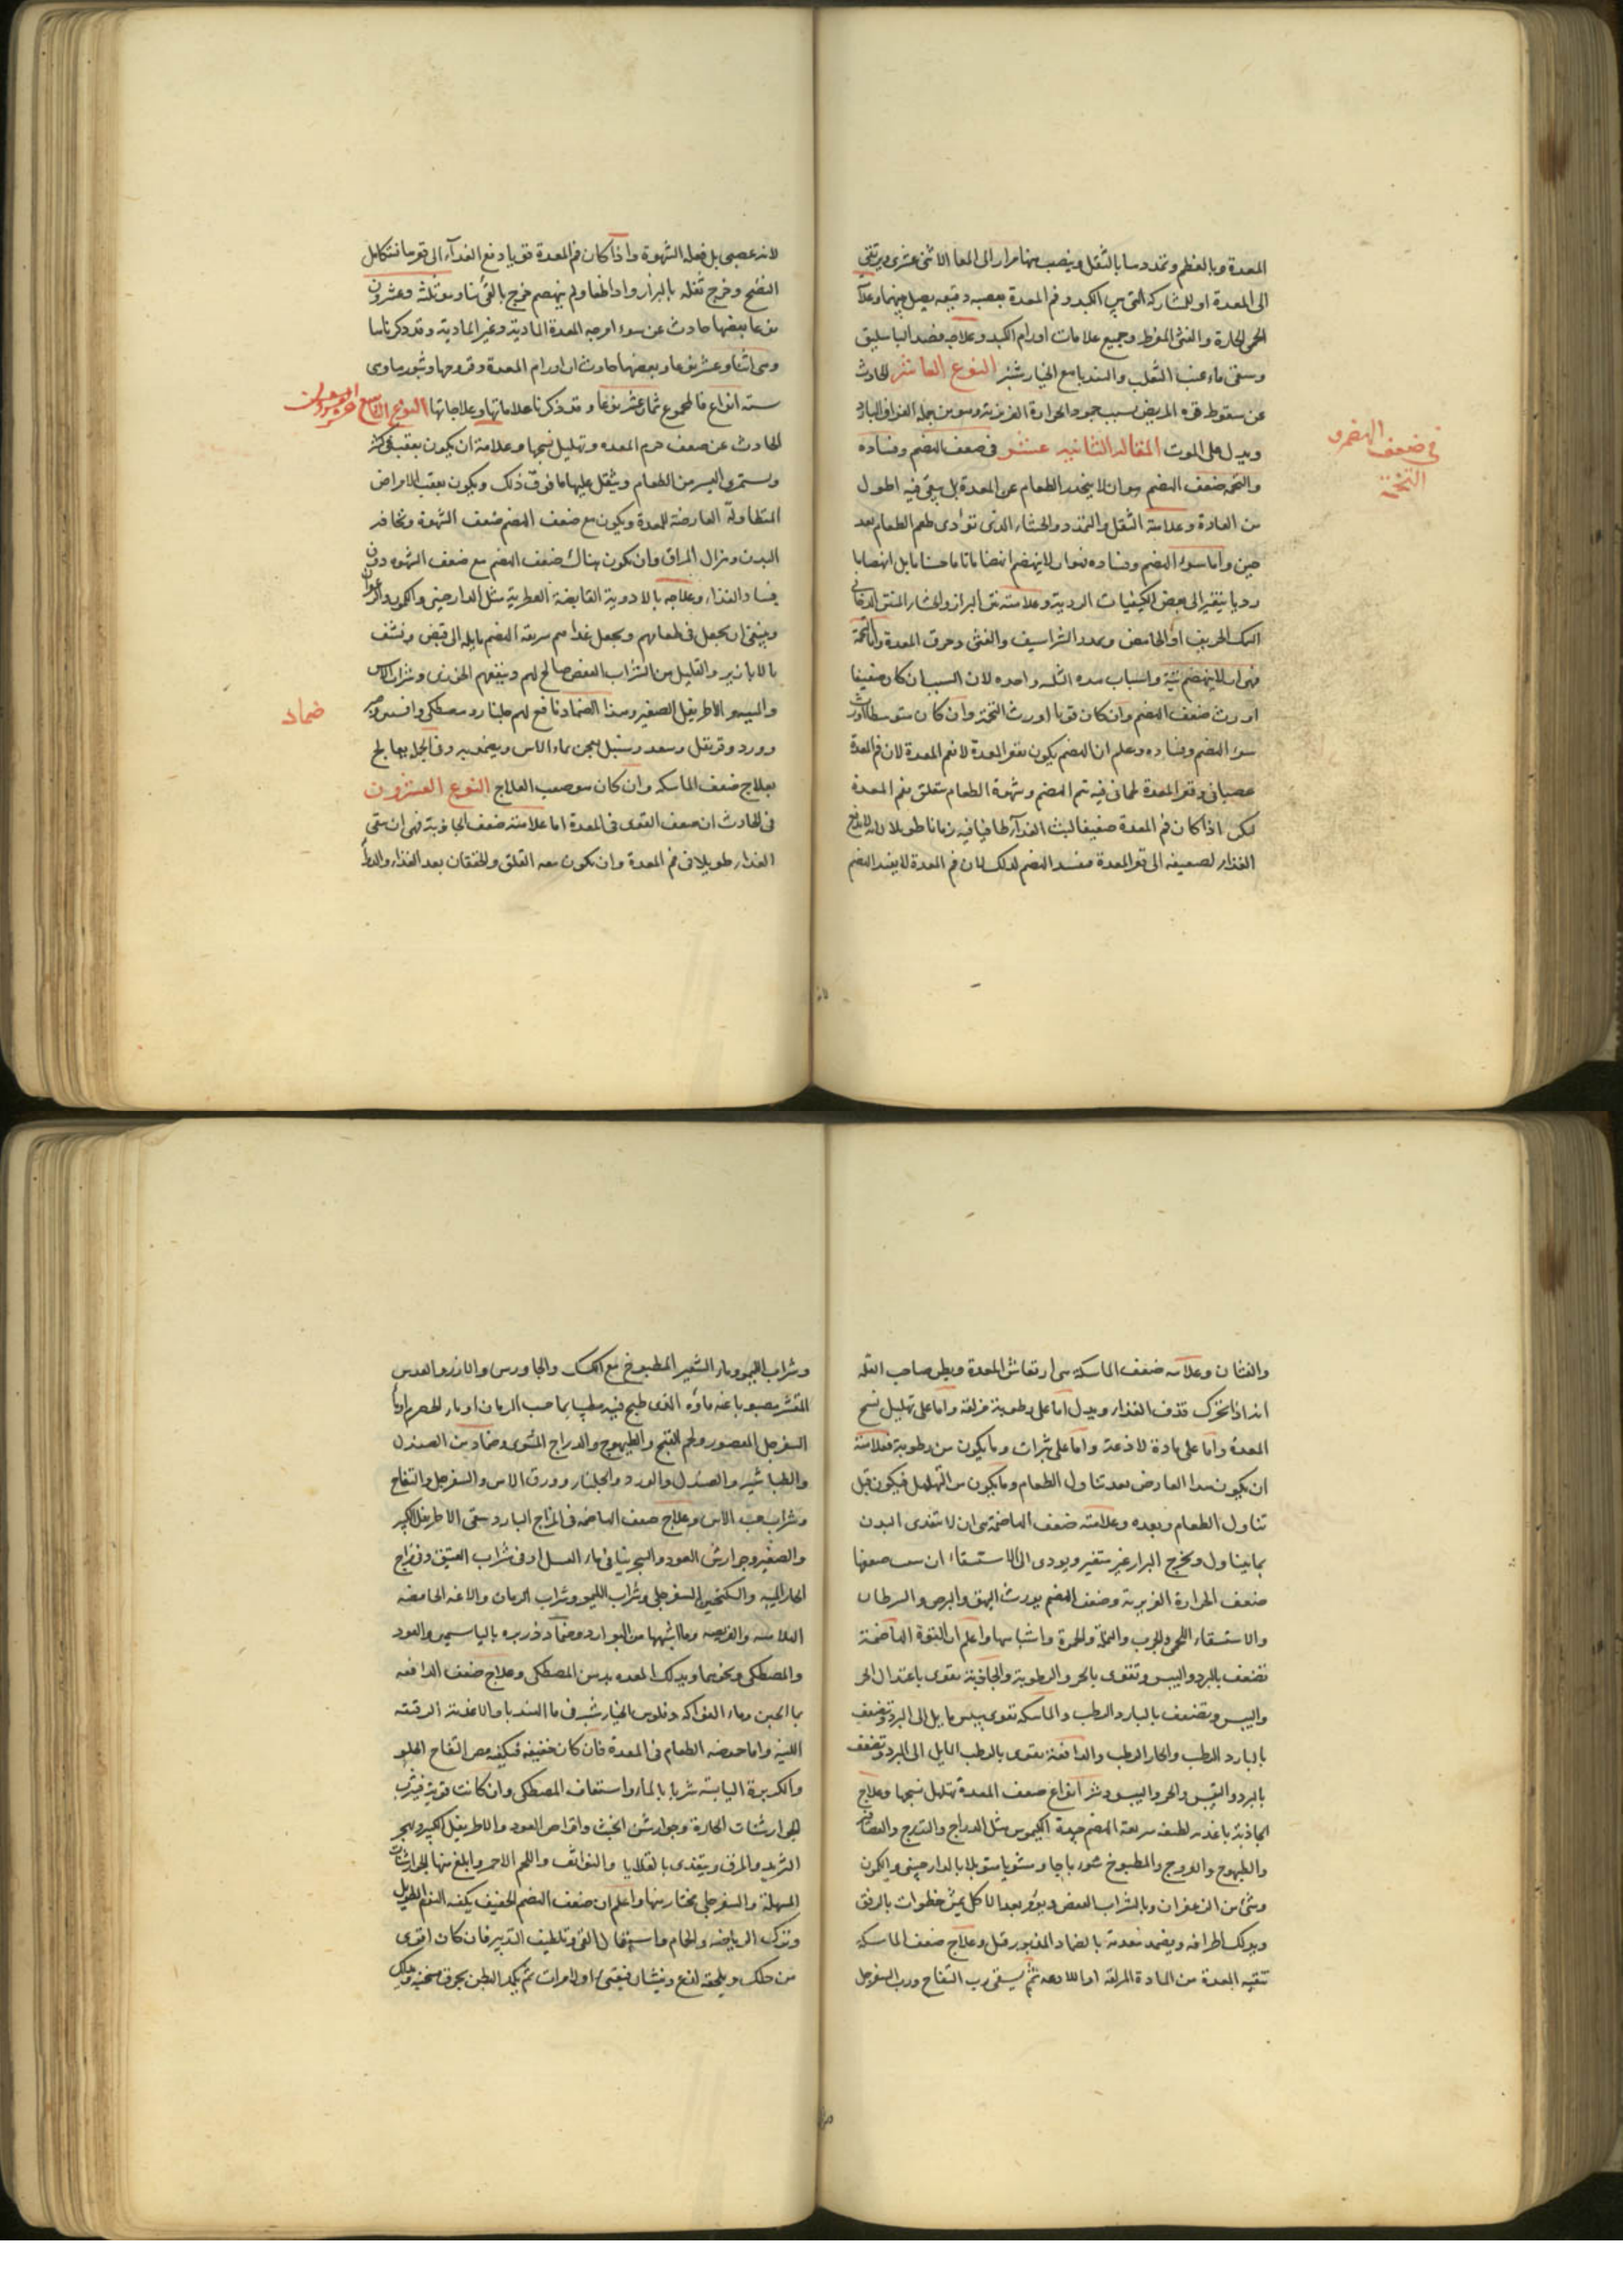 المعدة وبالعظم وتمددها بالثقل وينصب منها مرار الى المعا الاثنى عشرى ويرتقى
الى المعدة او للمشاركة التى بين الكبد وفم المعدة بعصبه دقيقه يصل بينهما وعلا
الحمى الحارة والقئ المفرط وجميع علامات اورام الكبد وعلاجه فصد الباسليق
وسقى ماء عنب الثعلب والهندبا مع الخيارشنبر النوع العاشر الحادث
عن سقوط قوة المريض بسبب جمود الحرارة الغريزية وهو من جملة الفواق البارد
ويدل على الموت المقالة الثانية عشر فى ضعف الهضم وفساده
والتخمه ضعف الهضم هو ان لا ينحدر الطعام عن المعدة بل يبقى فيه اطول
من العادة وعلامته الثقل والتمدد والجشاء الذى تؤدى طعم الطعام بعد
حين واما سوء الهضم وفساده فهو ان لا ينهضم انهضاما تاما حسنا بل انهضاما
رديا يتغير الى بعض الكيفيات الردية وعلامته نتن البراز والجشاء المنتن الدخانى
السمك الحريف او الحامض وتمدد الشراسيف والغثى وحرق المعدة واما التخمة
فهى ان لا ينهضم شئ واسباب هذه الثلثه واحده لان السبب ان كان ضعيفا
اورث ضعف الهضم وان كان قويا اورث التخمة وان كان متوسطا اورث
سوء الهضم وفساده وعلم ان الهضم يكون بقعر المعدة لا بفم المعدة لان فم المعدة
عصبانى وقعر المعدة لحمانى فيه تم الهضم وشهوة الطعام متعلق بفم المعدة
لكن اذا كان فم المعدة ضعيفا لبث الغذآء طافيا فيه زمانا طويلا ولانه لا يدفع
الغذاء لضعيفه الى قعر المعدة فسد الهضم لذلك لان فم المعدة لا يفيد الهضم
فى ضعف الهضم و
التخمة
لانه عصبى بل فعله الشهوة واذا كان فم المعدة قويا دفع الغذآء الى قعرها فتكامل
النضج وخرج ثفله بالبراز واذا طفا ولم ينهضم خرج بالقئ بناء وهو ثلثة وعشرون
نوعا بعضها حادث عن سوء امزجه المعدة المادية وغير المادية وقد ذكرناها
وهى اثنا وعشر نوعا وبعضها حادث ان اورام المعدة وقروحها وبثورها وهى
سته انواع فالمجموع ثمان عشر نوعا وقد ذكرنا علاماتها وعلاجاتها النوع التاسع عشر
الحادث عن ضعف جرم المعده وتهليل نسجها وعلامة ان يكون بعقب قئ كثر
ويستمرى اليسر من الطعام ويثقل عليها ما فوق ذلك ويكون بعقب الامراض
المتطاولة العارضة للمعدة ويكون مع ضعف الهضم ضعف الشهوة ونحافه
البدن وهزال المراق وان يكون هناك ضعف الهضم مع ضعف الشهوه دون
فساد الغذاء وعلاجه بالادوية القابضة العطرية مثل الدارصينى والكمون والزعفران
وينبغى ان يجعل فى طعامهم ويجعل غذاءهم سريعة الهضم مايلة الى قبض ونشف
بالابازير والقليل من الشراب العفص صالح لهم وينفعهم الخوزى وشراب الاس
والميبه والاطريفل الصغير وهذا الضماد نافع لهم جلنار ومصطكى وافسنتين
وورد وقرنفل وسعد وسنبل يعجن بماء الاس ويضمد به وفى الجمله يعالج
بعلاج ضعف الماسكه وان كان هو صعب العلاج النوع العشرون
فى الحادث ان ضعف القوى فى المعدة اما علامته ضعف الجاذبة فهى ان يبقى
الغذاء طويلا فى فم المعدة وان يكون معه القلق والخفقان بعد الغذاء والبطأ
ضماد
والغثان وعلامه ضعف الماسكة هى ارتعاش المعدة ويظن صاحب العله
انه اذا تحرك قذف الغذاء ويدل اما على رطوبة مزلقه واما على تهليل نسج
المعدة واما على مادة لاذعة واما على بثرات وما يكون من رطوبة فعلامته
ان يكون هذا العارض بعد تناول الطعام وما يكون من التهلهل فيكون قبل
تناول الطعام وبعده وعلامته ضعف الهاضمة هى ان لا يتغذى البدن
بما يتناول ويخرج البراز غير متغير ويودى الى الاستسقاء ان سبب ضعفها
ضعف الحرارة الغريزية وضعف الهضم يورث البهق والبرص والسرطان
والاستسقاء اللحمى والجرب والنملة والحمرة واشباهها واعلم ان القوة الهاضمة
تضعف بالبرد واليبس وتقوى بالحر والرطوبة والجاذبة تقوى باعتدال الحر
واليبس ويضعف بالبارد الرطب والماسكه تقوى بيبس مايل الى البرد وتضعف
بالبارد الرطب والحار الرطب والدافعة تقوى بالرطب المايل الى البرد وتضعف
بالبرد والقبض والحر واليبس وشر انواع ضعف المعدة تهلهل نسجها وعلاج
الجاذبة باغذية لطيفه سريعة الهضم جيدة الكيموس مثل الدراج والتدرج والعصافير
والطيهوج والفروج والمطبوخ شورباجا ومشويا متوبلا بالدارصينى والكمون
وشئ من الزعفران وبالشراب العفص ويؤمر بعد الاكل يمشى خطوات بالرفق
ويدلك اطرافه ويضمد معدته بالضماد المذبور قبل وعلاج ضعف الماسكه
تنقيه المعدة من المادة المزلقه او اللادعه ثم يسقى رب التفاح ورب السفرجل
وشراب الليمو وماء الشعير المطبوخ مع الكعك والجاورس والارز والعدس
المقشر مصبوبا عنه ماؤه الذى طبخ فيه مطيبا بماء حب الرمان او ماء الحصرم او ماء
السفرجل المعصور ولحم القبج والطيهوج والدراج المشوى وضماد من الصندل
والطباشير والصندل والورد والجلنار وورق الاس والسفرجل والتفاح
وشراب حب الاس وعلاج ضعف الهاضمه فى المزاج البارد سقى الاطريفل الكبير
والصغير وجوارش العود والسجرينيا فى ماء العسل او فى شراب العتيق وفى مزاج
الحار الميبه والسكنجبين السفرجلى وشراب الليمو وشراب الرمان والاغذيه الحامضه
القلاسه والقريصه وما اشبهها من البوارد وضماد ذريره بالياسمين والعود
والمصطكى ونحوهما ويدلك المعده بدهن المصطكى وعلاج ضعف الدافعه
بما الجبن وماء الفواكه وفلوس الخيارشنبر فى ما الهندبا والاغذية الرقيقه
اللينة واما حموضه الطعام فى المعدة فان كان خفيفه فيكفيه مص التفاح الحلو
والكزبرة اليابسة شربا بالماء واستفاف المصطكى وان كانت قوية فيشرب
الجوارشنات الحارة وجوارش الخبث واقراص العود والاطريفل الكبير ويهجر
الثريد والمرق ويتغذى بالقلايا والنواشف واللحم الاحمر وابلغ منها الجوارشنات
المسهلة والسفرجلى يختار منها واعلم ان ضعف الهضم الخفيف يكفيه النوم الطويل
وترك الرياضه والحمام واستعمال القئ وتلطيف التدبير فان كان اقوى
من ذلك ويلحقه لذع وغثيان فيقئ اولا مرات ثم يكمد البطن بخرق مسخنة وبدلك